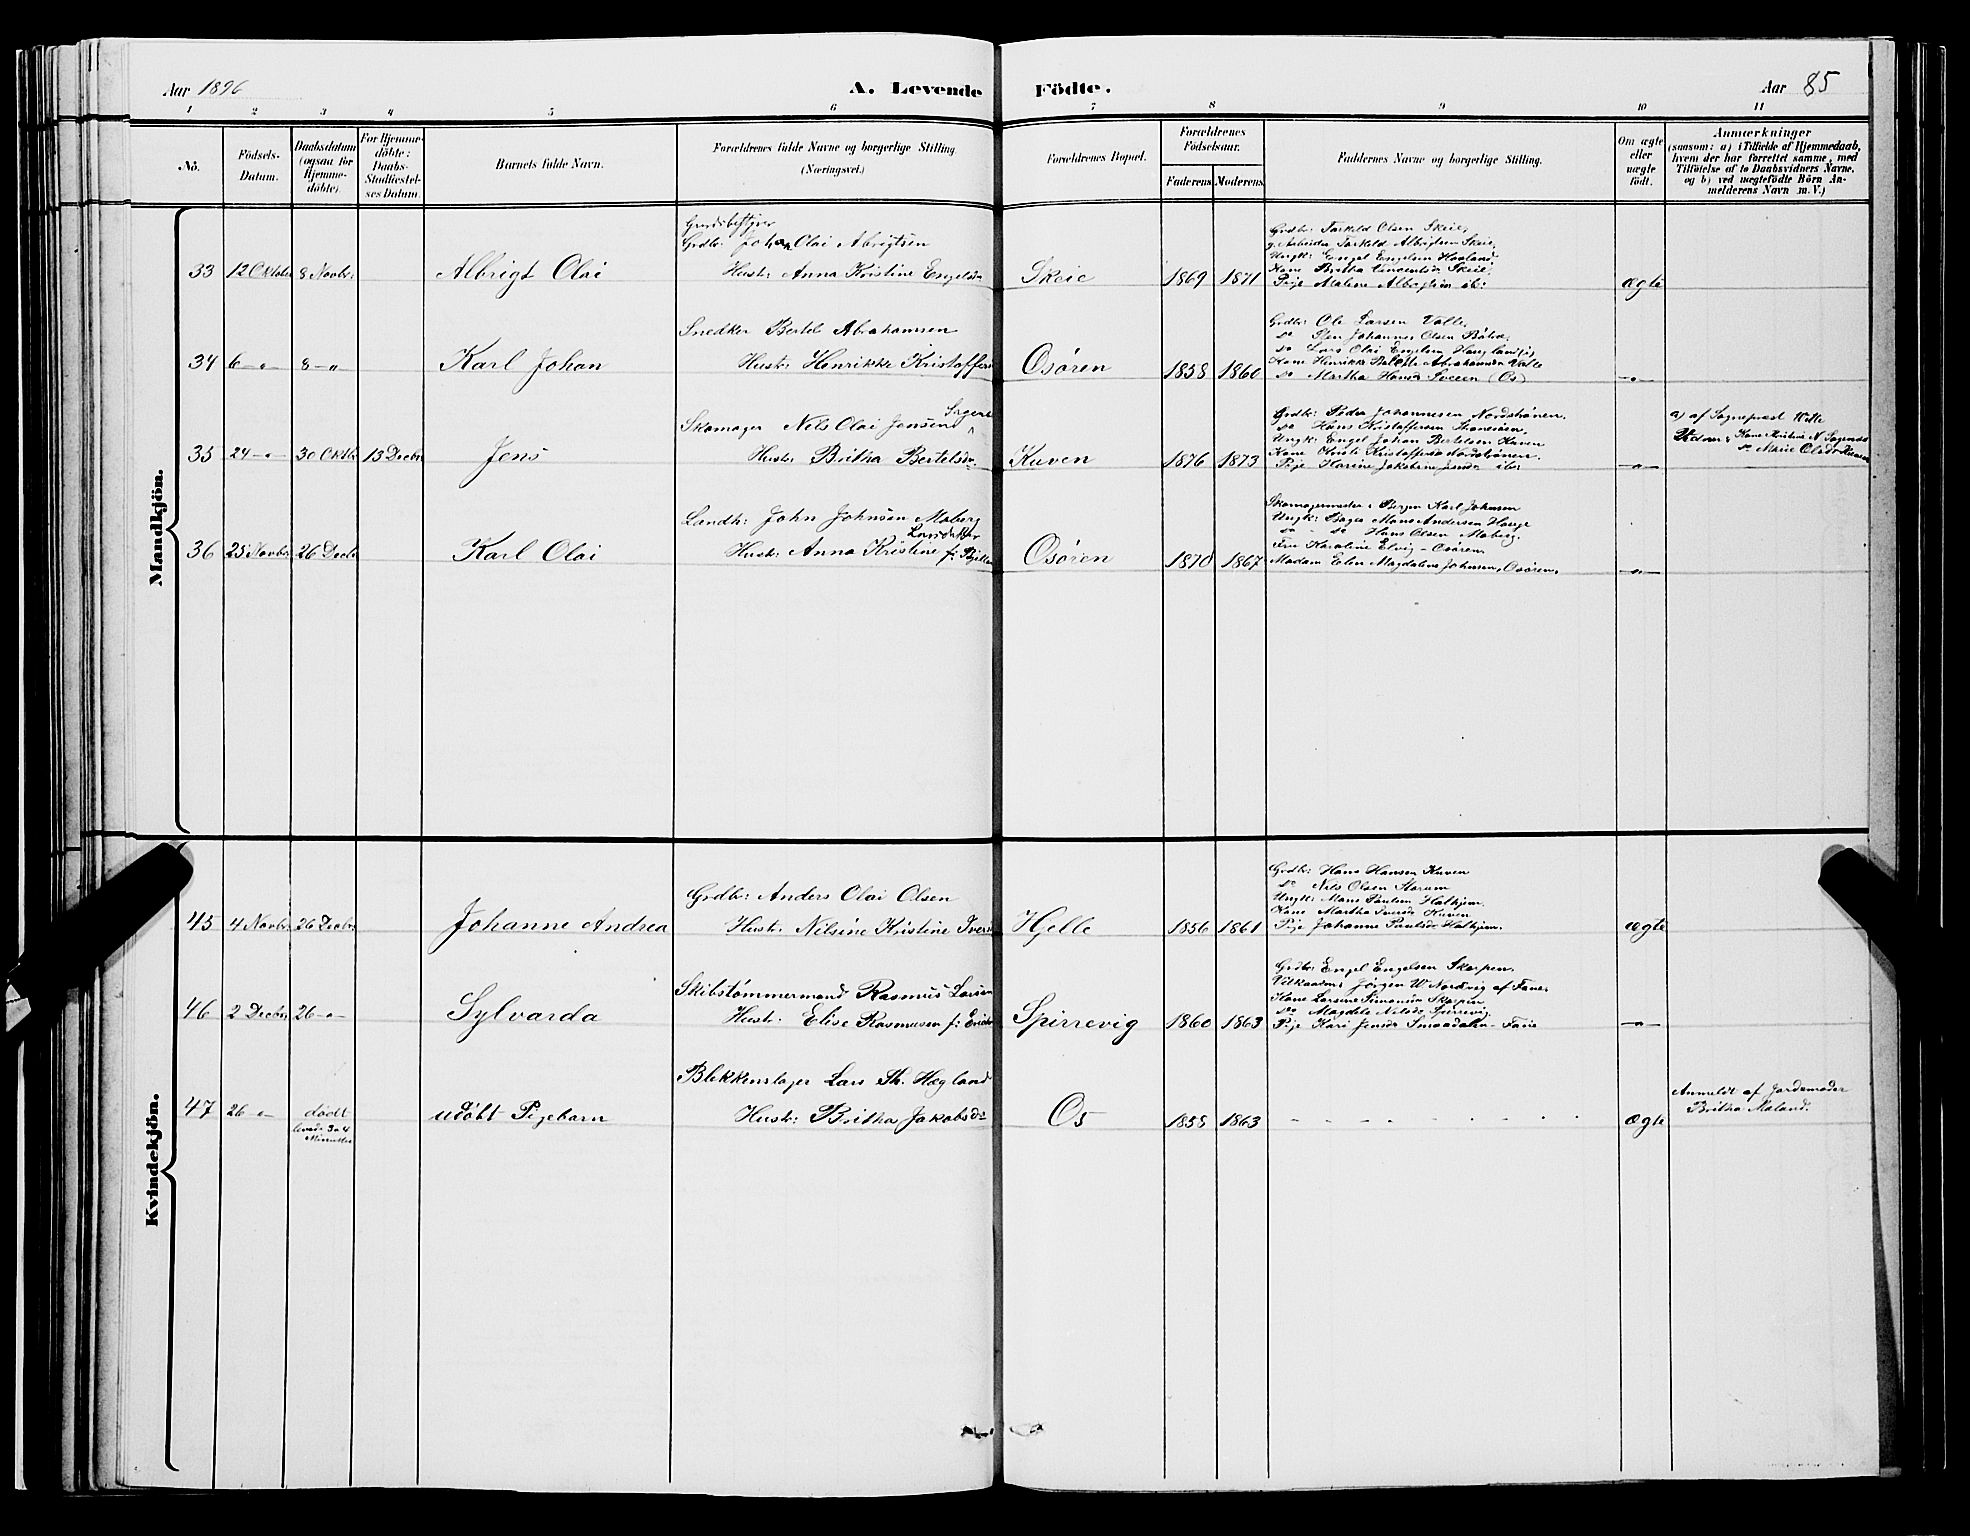 Aar 1896
A. Levende Födte.
Aar 85
1 2 3 4 5 6 7 8 9 10 11
Nô.
Födsels-Datum.
Daabsdatum (ogsaa for Hjemme-döbte).
For Hjemme-döbte: Daabs-Stadfæstel-ses Datum.
Barnets fulde Navn.
Forældrenes fulde Navne og borgerlige Stilling (Næringsvei.)
Forældrenes Bopæl.
Forældrenes Födselsaar.
Faderens Moderens
Faddernes Navne og borgerlige Stilling.
Om ægte eller uægte født.
Anmærkninger
(saasom: a) i Tilfælde af Hjemmedaab,
hvem der har forrettet samme, med
Tilföielse af to Daabsvidners Navne,
og b) ved uægtefödte Börn An-
melderens Navn m. V.)
Mandkjön.
33 12 Oktober 8 Novbr. Albrigt Olai
Gaardbr: Johan Olai Abrigtsen
Hustr: Anna Kristine Engelsdr
Skeie 1869 1871
Grdbr: Torkeld Olsen Skeie,
g. Arbeider Torkeld Albrigtsen Skeie,
Ungk: Engel Engelsen Haaland
Kone Britha Vincentsdr Skeie,
Pige Malene ib:
ægte
34 6 -"- 8 -"- Karl Johan
Snedker Bertel Abrahamsen
Hustr: Henrikke Kristoffersd
Osören 1858 1860
Grdbr: Ole Larsen Valle,
do Johannes Olsen
do Lars Olai Engelsen
Kone Henrikke Abrahamsdr Valle
do Martha Hansdr Sveen (Os)
-"-
35 24 -"- 30 Oktbr 13 Decbr Jens
Skomager Nils Olai Jensen
Hustr: Britha Bertelsdr
Kuven 1876 1873
Grdbr: Peder Johannesen Nordströnen.
do Hans Kristoffersen
Ungk: Engel Johan Bertelsen Kuven
Kone Kristi Kristoffersdr Nordströnen.
Pige Karine Jakobine Jensdr ib:
-"-
a) af Sogneprest Witte
Vidner: Kone Kristine N.
do Marie Olsdr Kuven
36 25 Novbr. 26 Decbr Karl Olai
Landh: John Johnsen Moberg
Hustr: Anna Kristine f:
Osören 1870 1867
Skomagermester i Bergen Karl Johnsen
Ungk: Mons Andersen Hauge
do - do Hans Olsen Moberg.
Fru Karoline Elvig - Osören
Madam Elen Magdalene Johnsen, Osören.
-"-
Kvindekjön.
45 4 Novbr. 26 Decbr. Johanne Andrea
Grdbr: Anders Olai Olsen
Hustr: Nilsine Kristine Iversd
Hjelle 1856 1861
Grdbr: Hans Hansen Kuven
do Nils Olsen Storum
Ungk: Mons Paulsen Halhjem
Kone Martha Iversdr Kuven
Pige Johanne Paulsdr Halhjem.
ægte
46 2 Decbr. 26 -"- Sylvarda
Skibstömmermand Rasmus Larsen
Hustr: Elise Rasmussen f:
Spirrevig 1860 1863
Grdbr: Engel Engelsen Skorpen.
Jörgen W. Nordvig af Fane.
Kone Larsine Simonsen Skorpen
do Magdele Nilsdr Spirrevig
Pige Kari Jensdr Smaadalen - Fane
-"-
47 26 -"- dödt
levede 3 a 4 Minutter
udöbt Pigebarn
Blikkenslager Lars Th. Hegland
Hustr: Britha Jakobsdr
Os 1858 1863
ægte
Anmeldt af Jordemoder
Britha Moland.